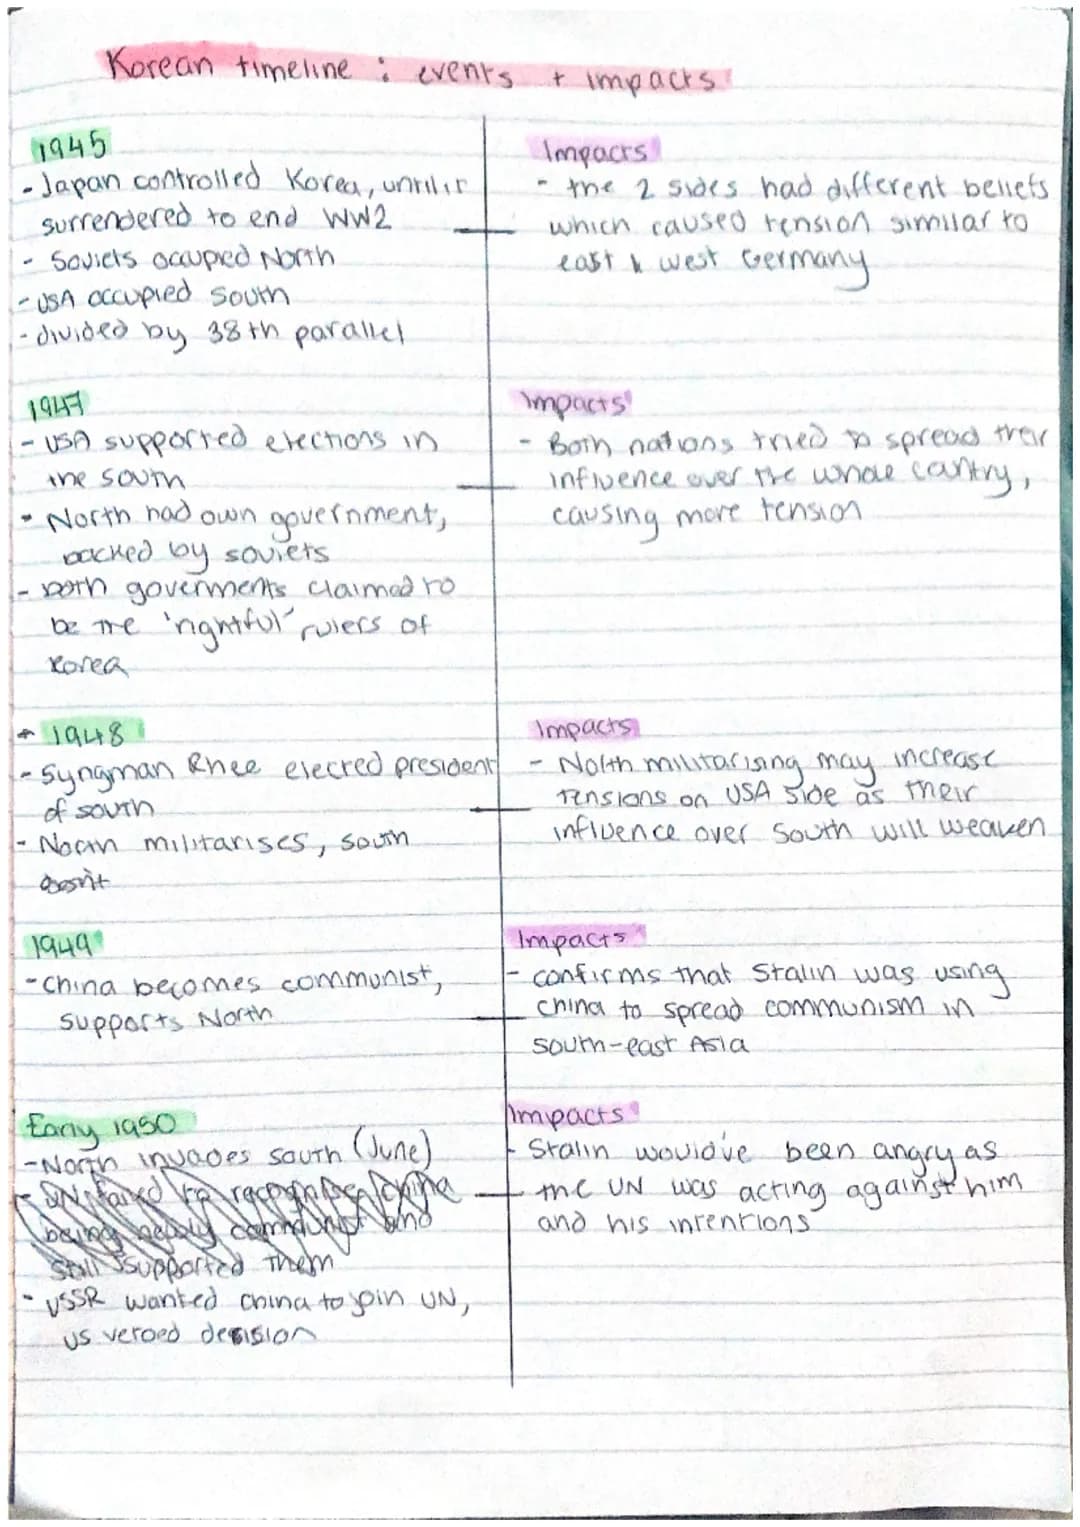 Korean timeline : events + impacts
1945
- Japan controlled Korea, until it
surrendered to end WW2
- Soviets occupied North
- USA occupied South
- divided by 38th parallel
Impacts
- the 2 sides had different beliefs
which caused tension similar to
east & west Germany
1947
- USA supported elections in
the south
- North had own government,
backed by soviets
- both goverments claimed to
be the 'rightful' rulers of
Korea
Impacts
- Both nations tried to spread their
influence over the whole cantry,
causing more tension
1948
- Syngman Rhee elected president
of south
- North militarises, south
doesn't
Impacts
- North militarising may increase
tensions on USA side as their
influence over South will weaken
1949
- China becomes communist,
supports North
Impacts
- confirms that Stalin was using
china to spread communism in
south-east Asia
Early 1950
- North invades south (June)
- UN failed to recognise china
being newly communist and
still supported them
- USSR wanted china to join UN,
US vetoed decision
Impacts
- Stalin would've been angry as
the UN was acting against him
and his intentions